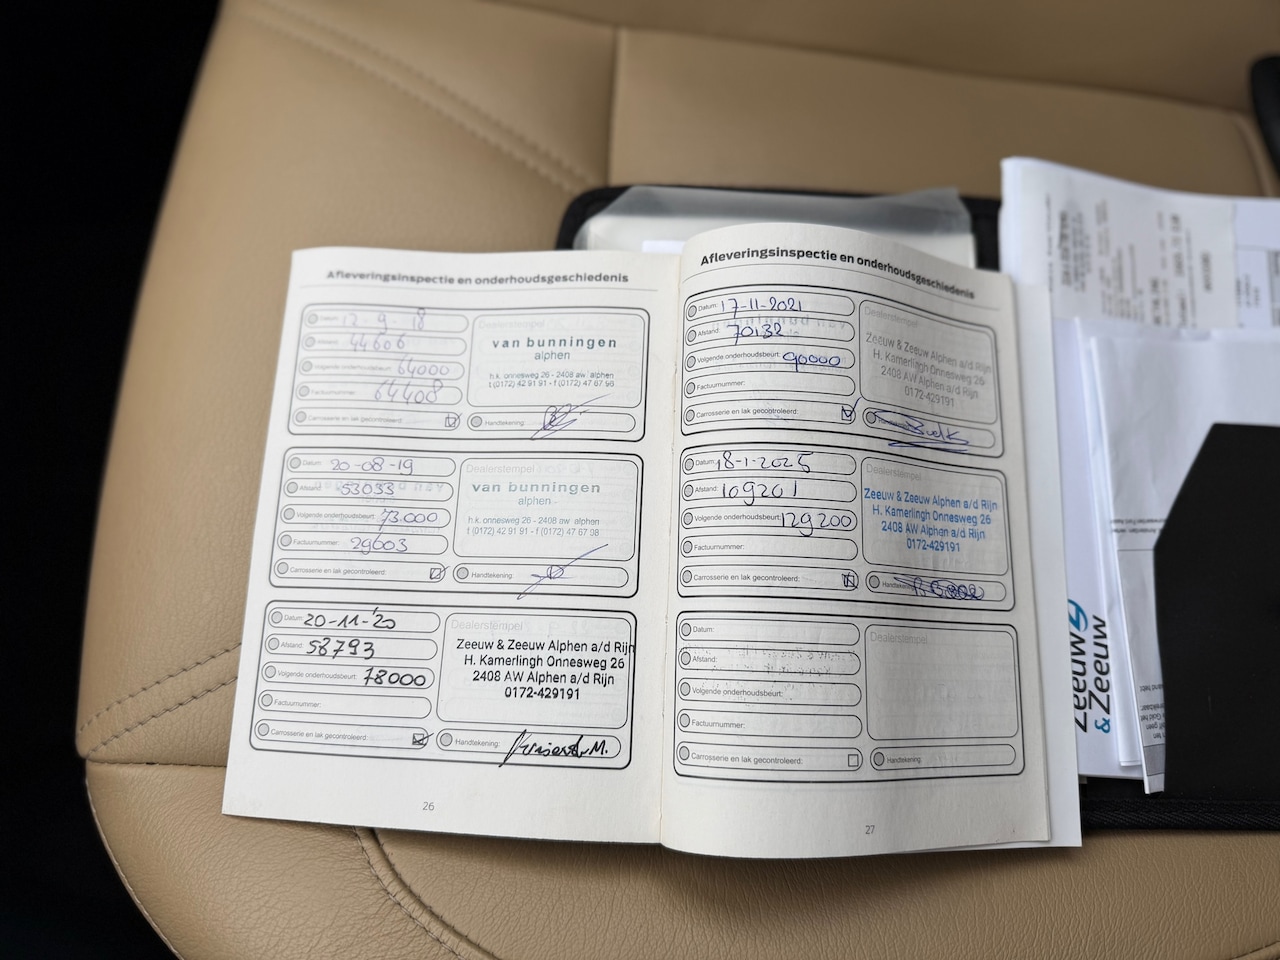 Afleveringsinspectie en onderhoudsgeschiedenis
Datum: 12-9-18
Afstand: 44606
Volgende onderhoudsbeurt: 64000
Factuurnummer: 64408
Carrosserie en lak gecontroleerd:
Dealerstempel
van bunningen
alphen
h.k. onnesweg 26 - 2408 aw alphen
t (0172) 42 91 91 - f (0172) 47 67 98
Handtekening
Datum: 20-08-19
Afstand: 53033
Volgende onderhoudsbeurt: 73.000
Factuurnummer: 29603
Carrosserie en lak gecontroleerd:
Dealerstempel
van bunningen
alphen
h.k. onnesweg 26 - 2408 aw alphen
t (0172) 42 91 91 - f (0172) 47 67 98
Handtekening
Datum: 20-11-'20
Afstand: 58793
Volgende onderhoudsbeurt: 78000
Factuurnummer:
Carrosserie en lak gecontroleerd:
Dealerstempel
Zeeuw & Zeeuw Alphen a/d Rijn
H. Kamerlingh Onnesweg 26
2408 AW Alphen a/d Rijn
0172-429191
Handtekening:
26
Afleveringsinspectie en onderhoudsgeschiedenis
Datum: 17-11-2021
Afstand: 70132
Volgende onderhoudsbeurt: 90000
Factuurnummer:
Carrosserie en lak gecontroleerd:
Dealerstempel
Zeeuw & Zeeuw Alphen a/d Rijn
H. Kamerlingh Onnesweg 26
2408 AW Alphen a/d Rijn
0172-429191
Datum: 18-1-2025
Afstand: 109201
Volgende onderhoudsbeurt: 129200
Factuurnummer:
Carrosserie en lak gecontroleerd:
Dealerstempel
Zeeuw & Zeeuw Alphen a/d Rijn
H. Kamerlingh Onnesweg 26
2408 AW Alphen a/d Rijn
0172-429191
Handtekening
Datum:
Afstand:
Volgende onderhoudsbeurt:
Factuurnummer:
Carrosserie en lak gecontroleerd:
Dealerstempel
Handtekening
27
Zeeuw
& Zeeuw